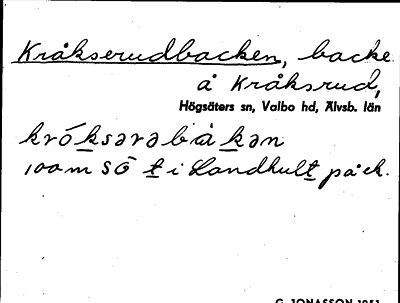 Kråkserudbacken, backe
å Kråksrud,
Högsäters sn, Valbo hd, Älvsb. län
króksərəbàkən
100 m SÖ t i Sandhult på ek.
G. JONASSON 1951